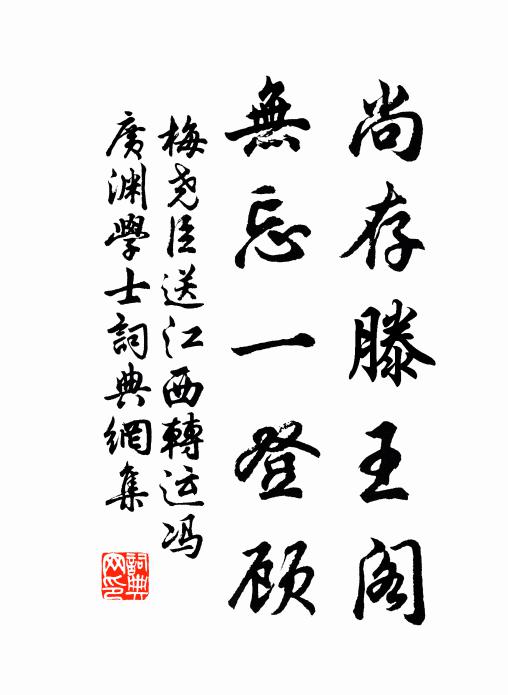 尚存滕王阁
無忘一登顾
梅尧臣送江西轉运冯
廣渊學士詞典網集
詞典网印